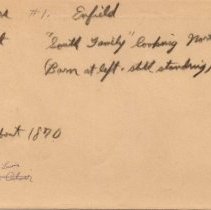 #1. Enfield
"South Family" looking Nor
(Barn at left - still standing)
bout 1870